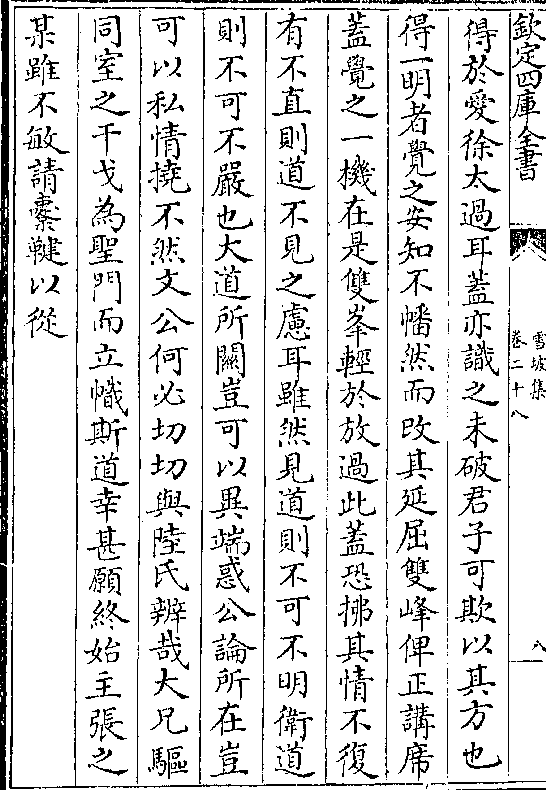 欽定四庫全書
雪坡集
卷二十八
八
得於愛徐太過耳蓋亦識之未破君子可欺以其方也
得一明者覺之安知不幡然而改其延屈雙峰俾正講席
蓋覺之一機在是雙峯輕於放過此蓋恐拂其情不復
有不直則道不見之慮耳雖然見道則不可不明衛道
則不可不嚴也大道所關豈可以異端惑公論所在豈
可以私情撓不然文公何必切切與陸氏辨哉大兄驅
同室之干戈為聖門而立幟斯道幸甚願終始主張之
某雖不敏請櫜鞬以從